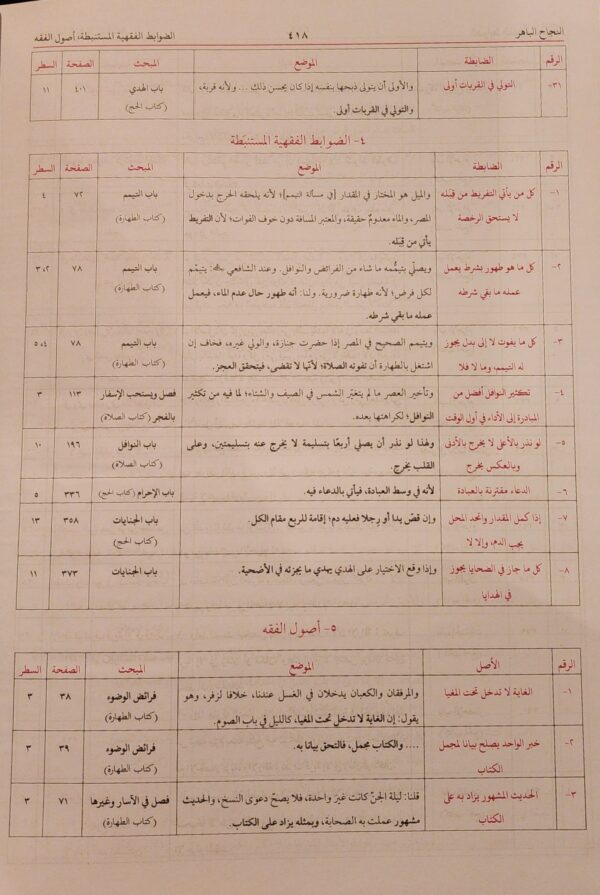 النجاح الباهر
٤١٨
الضوابط الفقهية المستنبطة، أصول الفقه
الرقم الضابطة الموضع المبحث الصفحة السطر
٣١- التولي في القربات أولى والأولى أن يتولى ذبحها بنفسه إذا كان يحسن ذلك ... ولأنه قربة، باب الهدي ٤٠١ ١١
والتولي في القربات أولى. (كتاب الحج)
٤- الضوابط الفقهية المستنبَطة
الرقم الضابطة الموضع المبحث الصفحة السطر
١- كل من يأتي التفريط من قِبَله والميل هو المختار في المقدار [في مسألة التيمم]؛ لأنه يلحقه الحرج بدخول باب التيمم ٧٢ ٤
لا يستحق الرخصة المصر، والماء معدومٌ حقيقة، والمعتبر المسافة دون خوف الفوات؛ لأن التفريط (كتاب الطهارة)
يأتي من قِبَله.
٢- كل ما هو طهور بشرط يعمل ويصلّي بتيمُّمه ما شاء من الفرائض والنوافل. وعند الشافعي ﵀: يتيمّم باب التيمم ٧٨ ٢، ٣
عمله ما بقي شرطه لكل فرض؛ لأنه طهارة ضرورية. ولنا: أنه طهور حال عدم الماء، فيعمل (كتاب الطهارة)
عمله ما بقي شرطه.
٣- كل ما يفوت لا إلى بدل يجوز ويتيمم الصحيح في المصر إذا حضرت جنازة، والولي غيره، فخاف إن باب التيمم ٧٨ ٤، ٥
له التيمم، وما لا فلا اشتغل بالطهارة أن تفوته الصلاة؛ لأنّها لا تقضى، فيتحقق العجز. (كتاب الطهارة)
٤- تكثير النوافل أفضل من وتأخير العصر ما لم يتغيّر الشمس في الصيف والشتاء؛ لما فيه من تكثير فصل ويستحب الإسفار ١١٣ ٣
المبادرة إلى الأداء في أول الوقت النوافل؛ لكراهتها بعده. بالفجر (كتاب الصلاة)
٥- لو نذر بالأعلى لا يخرج بالأدنى ولهذا لو نذر أن يصلي أربعًا بتسليمة لا يخرج عنه بتسليمتين، وعلى باب النوافل ١٩٦ ١٠
وبالعكس يخرج القلب يخرج. (كتاب الصلاة)
٦- الدعاء مقترنة بالعبادة لأنه في وسط العبادة، فيأتي بالدعاء فيه. باب الإحرام (كتاب الحج) ٣٣٦ ٥
٧- إذا كمل المقدار واتحد المحل وإن قصّ يدا أو رجلا فعليه دم؛ إقامة للربع مقام الكل. باب الجنايات ٣٥٨ ١٣
يجب الدم، وإلا لا (كتاب الحج)
٨- كل ما جاز في الضحايا يجوز وإذا وقع الاختيار على الهدي يهدي ما يجزئه في الأضحية. باب الجنايات ٣٧٣ ١١
في الهدايا
٥- أصول الفقه
الرقم الأصل الموضع المبحث الصفحة السطر
١- الغاية لا تدخل تحت المغيا والمرفقان والكعبان يدخلان في الغسل عندنا، خلافا لزفر، وهو فرائض الوضوء ٣٨ ٣
يقول: إن الغاية لا تدخل تحت المغيا، كالليل في باب الصوم. (كتاب الطهارة)
٢- خبر الواحد يصلح بيانا لمجمل .... والكتاب مجمل، فالتحق بيانا به. فرائض الوضوء ٣٩ ٣
الكتاب (كتاب الطهارة)
٣- الحديث المشهور يزاد به على قلنا: ليلة الجنّ كانت غيرَ واحدة، فلا يصحّ دعوى النسخ، والحديث فصل في الآسار وغيرها ٧١ ٣
الكتاب مشهور عملت به الصحابة، وبمثله يزاد على الكتاب. (كتاب الطهارة)